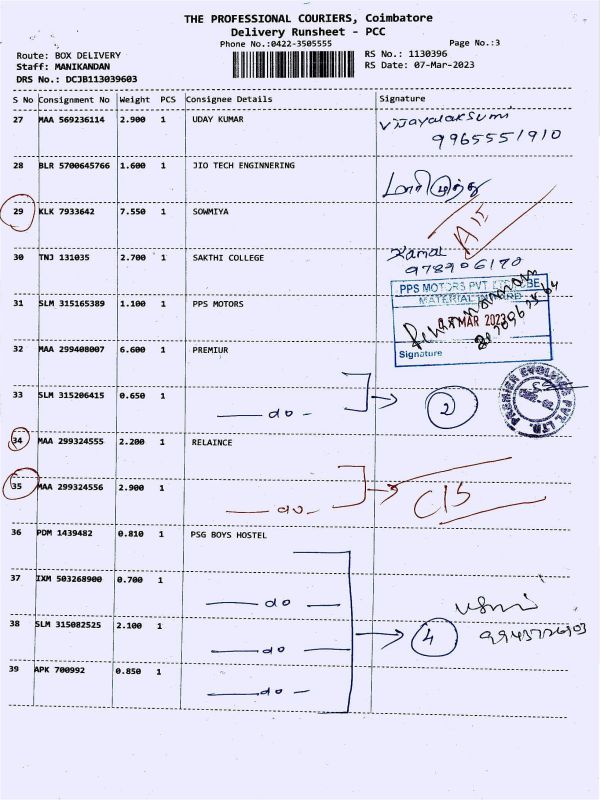 THE PROFESSIONAL COURIERS, Coimbatore
Delivery Runsheet - PCC
Phone No.:0422-3505555
Page No.:3
Route: BOX DELIVERY
RS No.: 1130396
Staff: MANIKANDAN
RS Date: 07-Mar-2023
DRS No.: DCJB113039603
S No Consignment No Weight PCS Consignee Details Signature
27 MAA 569236114 2.900 1 UDAY KUMAR
Vijayalaksumi
9965551910
28 BLR 5700645766 1.600 1 JIO TECH ENGINNERING
மாரிமுத்து
29 KLK 7933642 7.550 1 SOWMIYA
30 TNJ 131035 2.700 1 SAKTHI COLLEGE
Kamal
PPS MOTORS PVT
31 SLM 315165389 1.100 1 PPS MOTORS
MATERIAL
MAR 2023
32 MAA 299408007 6.600 1 PREMIUR
Signature
33 SLM 315206415 0.650 1
do
2
PREMIER EVOLVICS PVT. LTD.
34 MAA 299324555 2.200 1 RELAINCE
35 MAA 299324556 2.900 1
do
C/S
36 PDM 1439482 0.810 1 PSG BOYS HOSTEL
37 IXM 503268900 0.700 1
do
38 SLM 315082525 2.100 1
do
4
39 APK 700992 0.850 1
do